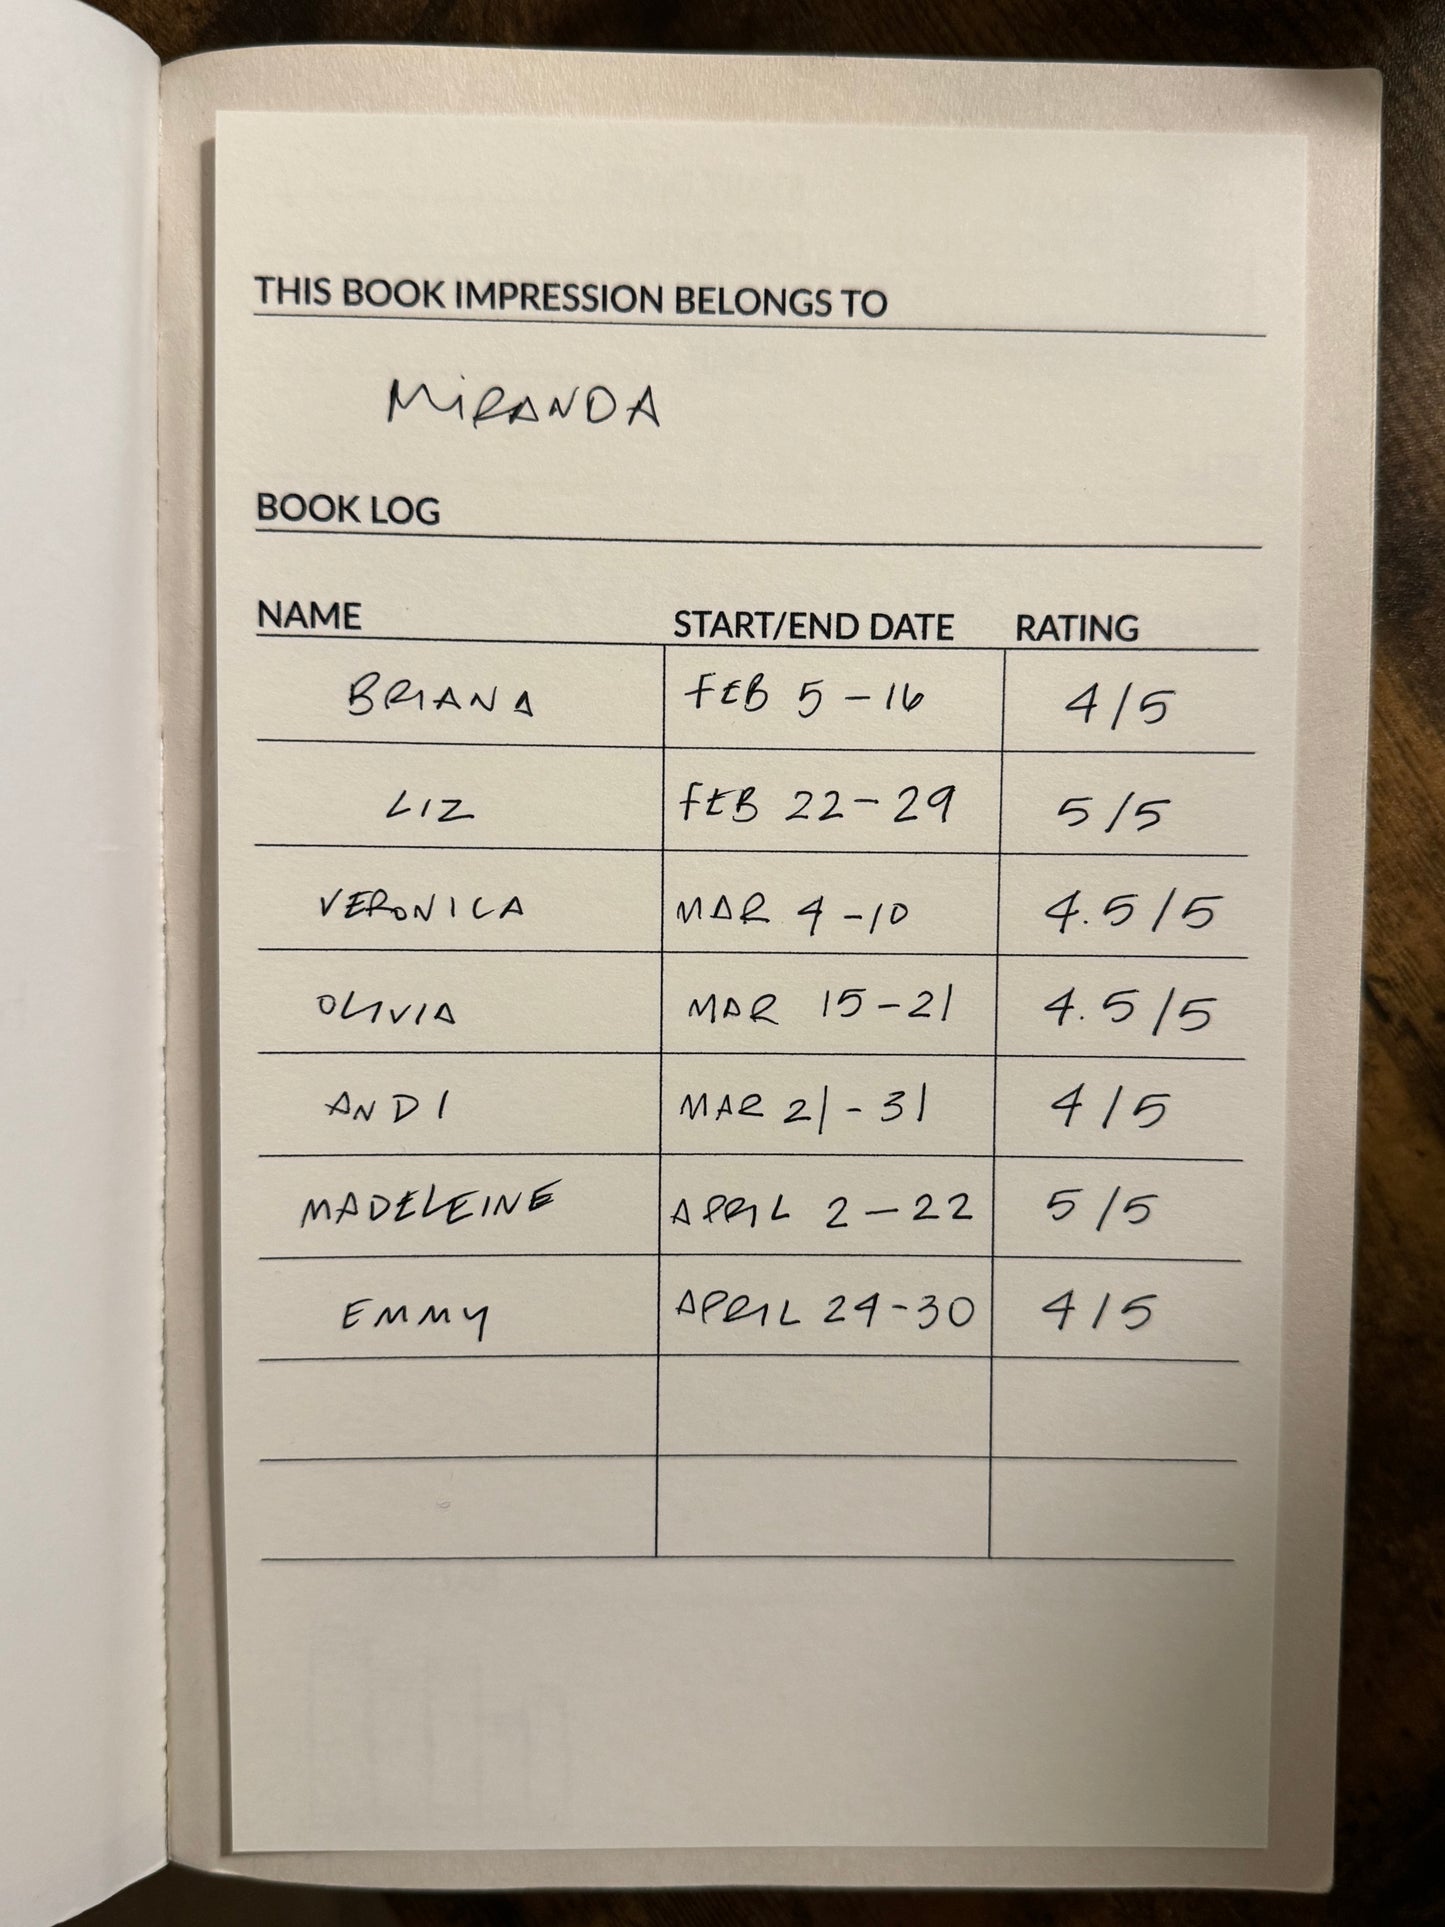 THIS BOOK IMPRESSION BELONGS TO
MIRANDA
BOOK LOG
NAME START/END DATE RATING
BRIANA FEB 5-16 4/5
LIZ FEB 22-29 5/5
VERONICA MAR 4-10 4.5/5
OLIVIA MAR 15-21 4.5/5
ANDI MAR 21-31 4/5
MADELEINE APRIL 2-22 5/5
EMMY APRIL 24-30 4/5